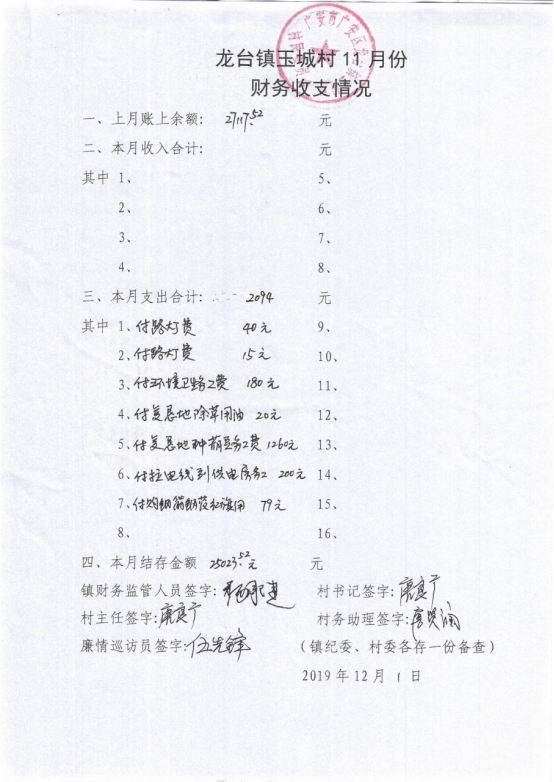 龙台镇玉城村 11 月份
财务收支情况
一、上月账上余额: 27117.52 元
二、本月收入合计: 元
其中 1、 5、
2、 6、
3、 7、
4、 8、
三、本月支出合计: 2094 元
其中 1、付路灯费 40元 9、
2、付路灯费 15元 10、
3、付环境卫生务工费 180元 11、
4、付复垦地除草用油 20元 12、
5、付复垦地种葫豆务工费 1260元 13、
6、付拉电线到供电房务工 200元 14、
7、付购 79元 15、
8、 16、
四、本月结存金额 25023.52元 元
镇财务监管人员签字: 村书记签字:
村主任签字: 村务助理签字:
廉情巡访员签字:伍先锋 (镇纪委、村委各存一份备查)
2019 年 12 月 1 日